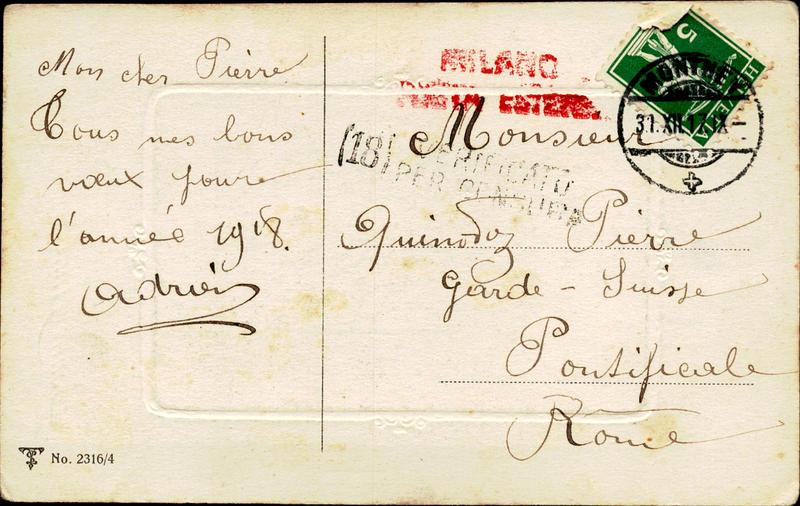 Mon cher Pierre
Tous mes bons
vœux pour
l'année 1918.
Adrien
No. 2316/4
MILANO
POSTA ESTERA
(18) VERIFICATO
PER CENSURA
5
H
MONTHEY
31.XII.17.IX
Monsieur
Quinodoz Pierre
Garde - Suisse
Pontificale
Rome